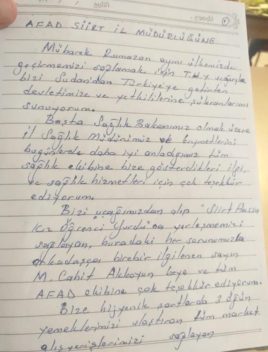 AFAD SİİRT İL MÜDÜRLÜĞÜNE
Mübarek Ramazan ayını ülkemizde
geçirmemizi sağlamak için THY uçağıyla
bizi Sudan'dan Türkiye'ye getiren
devletimize ve yetkililerine şükranlarımı
sunuyorum.
Başta Sağlık Bakanımız olmak üzere
il Sağlık Müdürümüz ve
bugünlerde daha iyi anladığımız tüm
sağlık ekibine bize gösterdikleri ilgi
ve sağlık hizmetleri için çok teşekkür
ediyorum.
Bizi uçağımızdan alıp "Siirt
Kız Öğrenci Yurdu"na yerleşmemizi
sağlayan, buradaki her sorunumuzla
arkadaşça birebir ilgilenen sayın
M. Cahit beye ve tüm
AFAD ekibine çok teşekkür ediyorum.
Bize hijyenik şartlarda 3 öğün
yemeklerimizi ulaştıran tüm market
alışverişlerimizi sağlayan